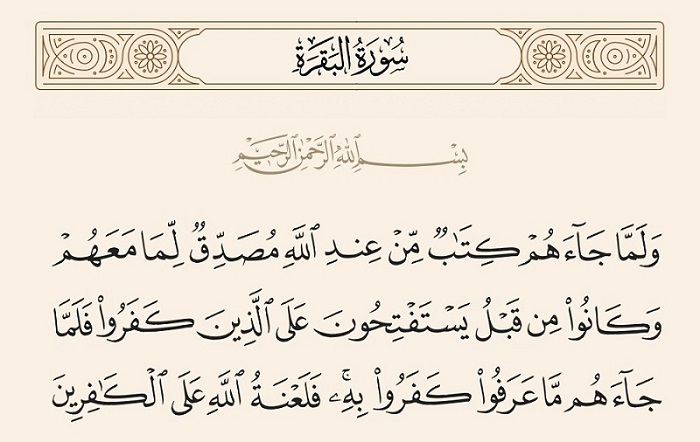 سُورَةُ البَقَرَةِ
بِسْمِ ٱللَّهِ ٱلرَّحْمَٰنِ ٱلرَّحِيمِ
وَلَمَّا جَآءَهُمْ كِتَٰبٌ مِّنْ عِندِ ٱللَّهِ مُصَدِّقٌ لِّمَا مَعَهُمْ
وَكَانُوا۟ مِن قَبْلُ يَسْتَفْتِحُونَ عَلَى ٱلَّذِينَ كَفَرُوا۟ فَلَمَّا
جَآءَهُم مَّا عَرَفُوا۟ كَفَرُوا۟ بِهِۦۚ فَلَعْنَةُ ٱللَّهِ عَلَى ٱلْكَٰفِرِينَ